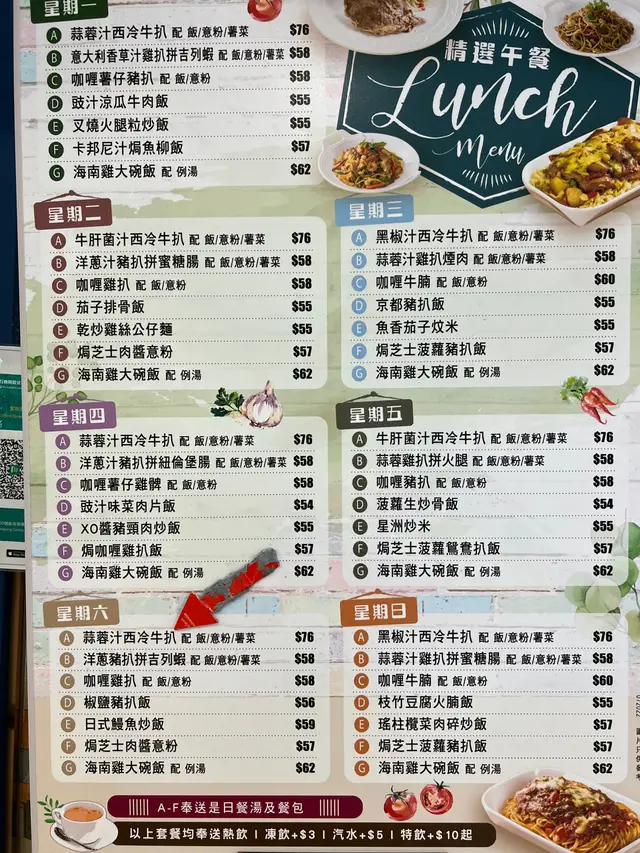 星期一
A 蒜蓉汁西冷牛扒 配 飯/意粉/薯菜 $76
B 意大利香草汁雞扒拼吉列蝦 配 飯/意粉/薯菜 $58
C 咖喱薯仔豬扒 配 飯/意粉 $58
D 豉汁涼瓜牛肉飯 $55
E 叉燒火腿粒炒飯 $55
F 卡邦尼汁焗魚柳飯 $57
G 海南雞大碗飯 配 例湯 $62
精選午餐
Lunch
Menu
星期二
A 牛肝菌汁西冷牛扒 配 飯/意粉/薯菜 $76
B 洋蔥汁豬扒拼蜜糖腸 配 飯/意粉/薯菜 $58
C 咖喱雞扒 配 飯/意粉 $58
D 茄子排骨飯 $55
E 乾炒雞絲公仔麵 $55
F 焗芝士肉醬意粉 $57
G 海南雞大碗飯 配 例湯 $62
星期三
A 黑椒汁西冷牛扒 配 飯/意粉/薯菜 $76
B 蒜蓉汁雞扒煙肉 配 飯/意粉/薯菜 $58
C 咖喱牛腩 配 飯/意粉 $60
D 京都豬扒飯 $55
E 魚香茄子炆米 $55
F 焗芝士菠蘿豬扒飯 $57
G 海南雞大碗飯 配 例湯 $62
星期四
A 蒜蓉汁西冷牛扒 配 飯/意粉/薯菜 $76
B 洋蔥汁豬扒拼紐倫堡腸 配 飯/意粉/薯菜 $58
C 咖喱薯仔雞髀 配 飯/意粉 $58
D 豉汁味菜肉片飯 $54
E XO醬豬頸肉炒飯 $55
F 焗咖喱雞扒飯 $57
G 海南雞大碗飯 配 例湯 $62
星期五
A 牛肝菌汁西冷牛扒 配 飯/意粉/薯菜 $76
B 蒜蓉雞扒拼火腿 配 飯/意粉/薯菜 $58
C 咖喱豬扒 配 飯/意粉 $58
D 菠蘿生炒骨飯 $54
E 星洲炒米 $55
F 焗芝士菠蘿鴛鴦扒飯 $57
G 海南雞大碗飯 配 例湯 $62
星期六
A 蒜蓉汁西冷牛扒 配 飯/意粉/薯菜 $76
B 洋蔥豬扒拼吉列蝦 配 飯/意粉/薯菜 $58
C 咖喱雞扒 配 飯/意粉 $58
D 椒鹽豬扒飯 $56
E 日式鰻魚炒飯 $59
F 焗芝士肉醬意粉 $57
G 海南雞大碗飯 配 例湯 $62
星期日
A 黑椒汁西冷牛扒 配 飯/意粉/薯菜 $76
B 蒜蓉汁雞扒拼蜜糖腸 配 飯/意粉/薯菜 $58
C 咖喱牛腩 配 飯/意粉 $60
D 枝竹豆腐火腩飯 $55
E 瑤柱欖菜肉碎炒飯 $57
F 焗芝士菠蘿豬扒飯 $57
G 海南雞大碗飯 配 例湯 $62
A-F奉送是日餐湯及餐包
以上套餐均奉送熱飲 | 凍飲+$3 | 汽水+$5 | 特飲+$10起